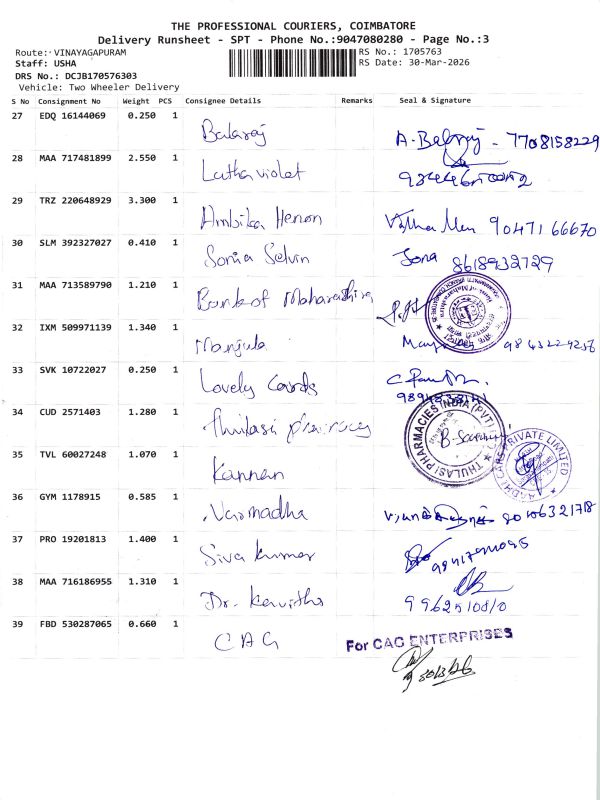 THE PROFESSIONAL COURIERS, COIMBATORE
Delivery Runsheet - SPT - Phone No.:9047080280 - Page No.:3
Route: VINAYAGAPURAM
RS No.: 1705763
Staff: USHA
RS Date: 30-Mar-2026
DRS No.: DCJB170576303
Vehicle: Two Wheeler Delivery
S No Consignment No Weight PCS Consignee Details Remarks Seal & Signature
27 EDQ 16144069 0.250 1 Balaraj A. Balraj - 7708158229
28 MAA 717481899 2.550 1 Latha violet
29 TRZ 220648929 3.300 1 Ambika Menon 90471 66670
30 SLM 392327027 0.410 1 Sonia Selvin Sona 8618932729
31 MAA 713589790 1.210 1 Bank of Maharashtra
32 IXM 509971139 1.340 1 Manjula
33 SVK 10722027 0.250 1 Lovely Cards
34 CUD 2571403 1.280 1 Thulasi pharmacy
THULASI PHARMACIES INDIA (PVT)
35 TVL 60027248 1.070 1 Kannan
CARE PRIVATE LIMITED
36 GYM 1178915 0.585 1 Narmadha
37 PRO 19201813 1.400 1 Siva kumar
38 MAA 716186955 1.310 1 Dr. Kavitha
39 FBD 530287065 0.660 1 C A G
For CAG ENTERPRISES